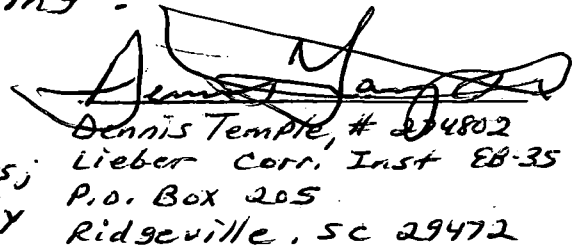 ing.
Dennis Temple, # 274802
s; Lieber Corr. Inst EB-35
y P.O. Box 205
Ridgeville, SC 29472